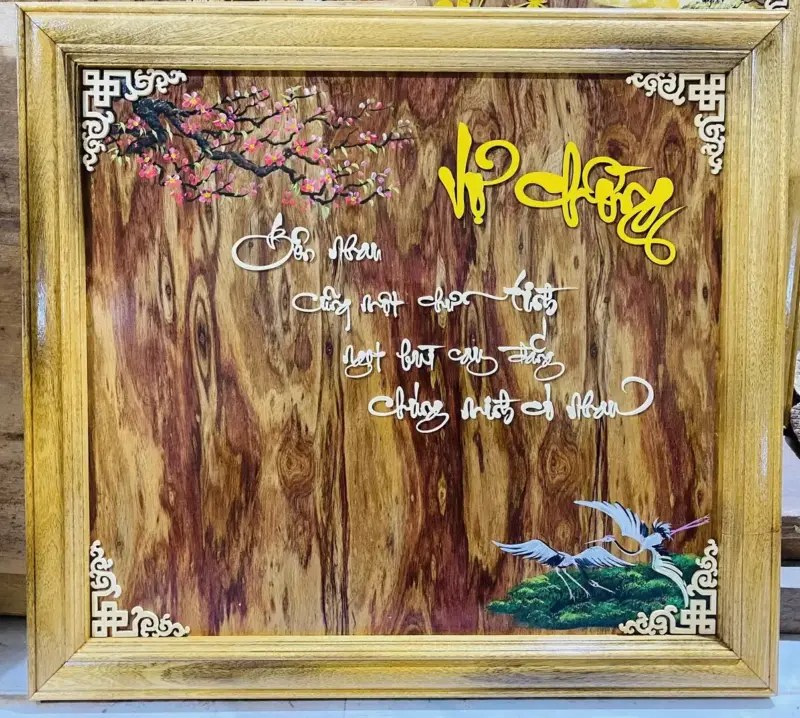 Vợ chồng
Bên nhau
cùng một chữ tình
ngọt bùi cay đắng
chúng mình có nhau